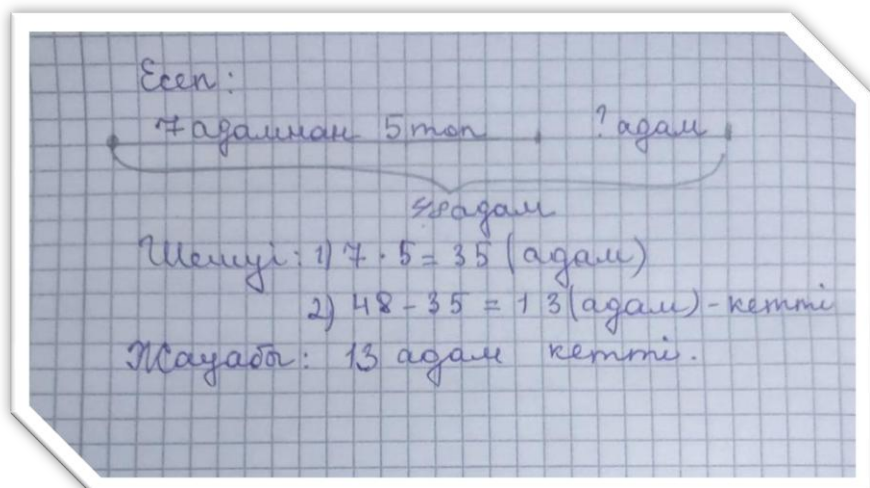 Есеп:
7 адамнан 5 топ ? адам
48 адам
Шешуі: 1) 7 · 5 = 35 (адам)
2) 48 - 35 = 13 (адам) - кетті
Жауабы: 13 адам кетті.